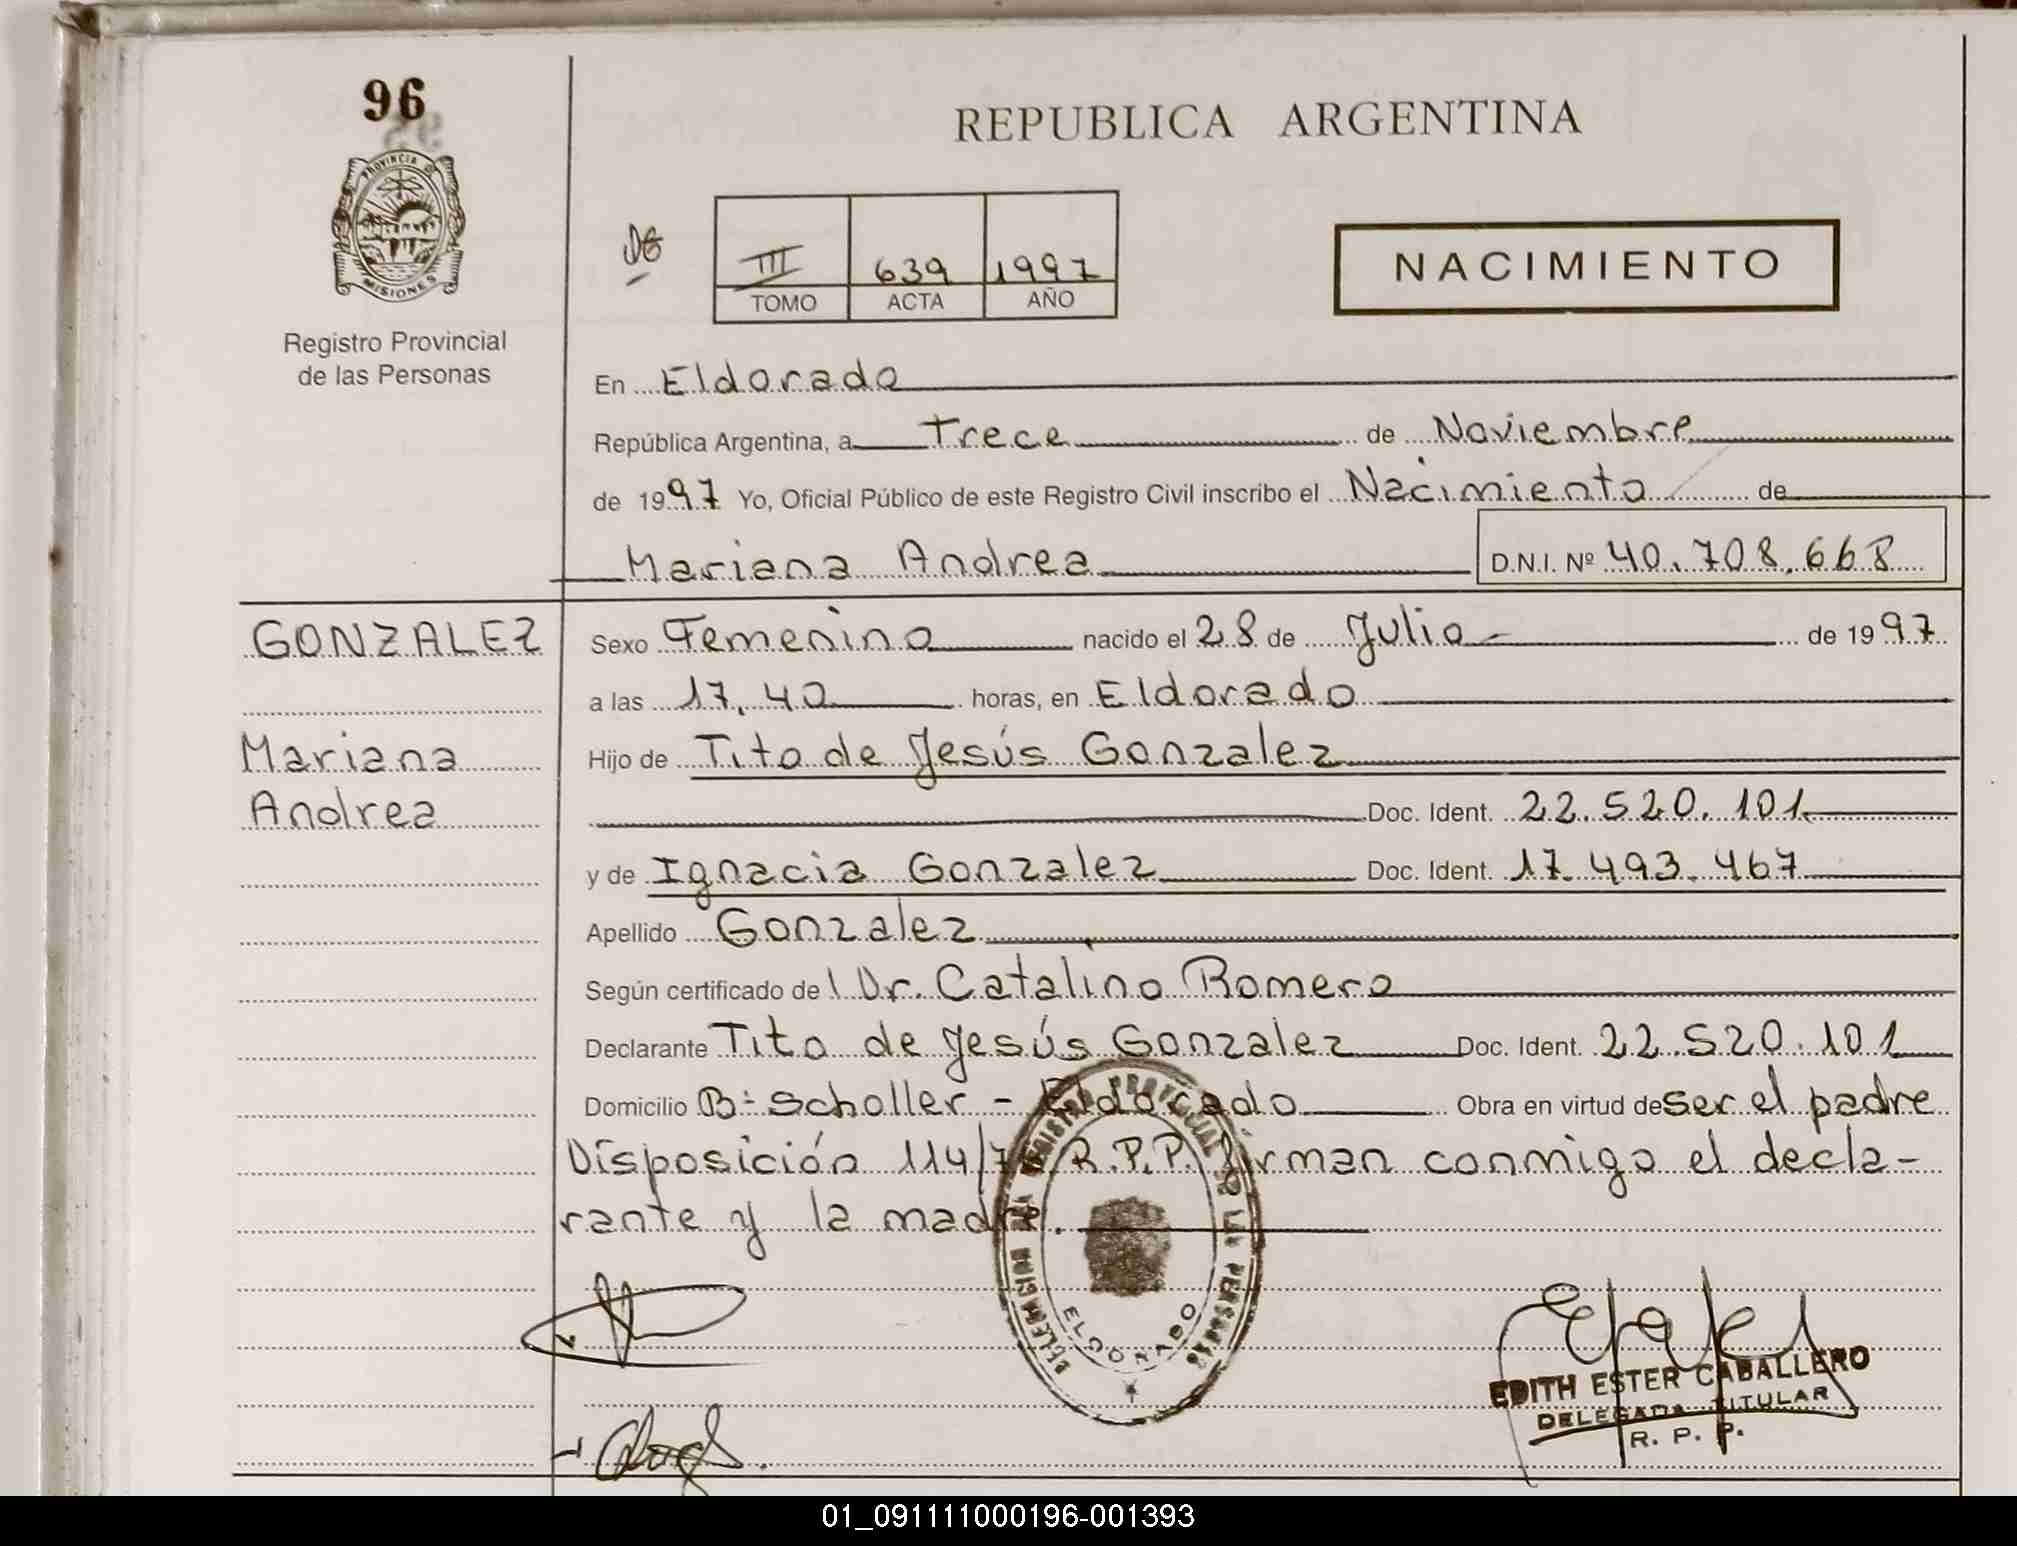 96
REPUBLICA ARGENTINA
PROVINCIA DE
MISIONES
III 639 1997
TOMO ACTA AÑO
NACIMIENTO
Registro Provincial
de las Personas
En Eldorado
República Argentina, a Trece de Noviembre
de 1997 Yo, Oficial Público de este Registro Civil inscribo el Nacimiento de
Mariana Andrea D.N.I. Nº 40.708.668
GONZALEZ Sexo Femenino nacido el 28 de Julio de 1997
a las 17,40 horas, en Eldorado
Mariana Hijo de Tito de Jesús Gonzalez
Andrea Doc. Ident. 22.520.101
y de Ignacia Gonzalez Doc. Ident. 17.493.467
Apellido Gonzalez
Según certificado del Dr. Catalino Romero
Declarante Tito de Jesús Gonzalez Doc. Ident. 22.520.101
Domicilio Bº Scholler - Eldorado Obra en virtud de ser el padre
Disposición 114/ R.P.P. firman conmigo el decla-
rante y la madre.
REGISTRO PROVINCIAL DE LAS PERSONAS
ELDORADO
EDITH ESTER CABALLERO
DELEGADA TITULAR
R. P. P.
01_091111000196-001393